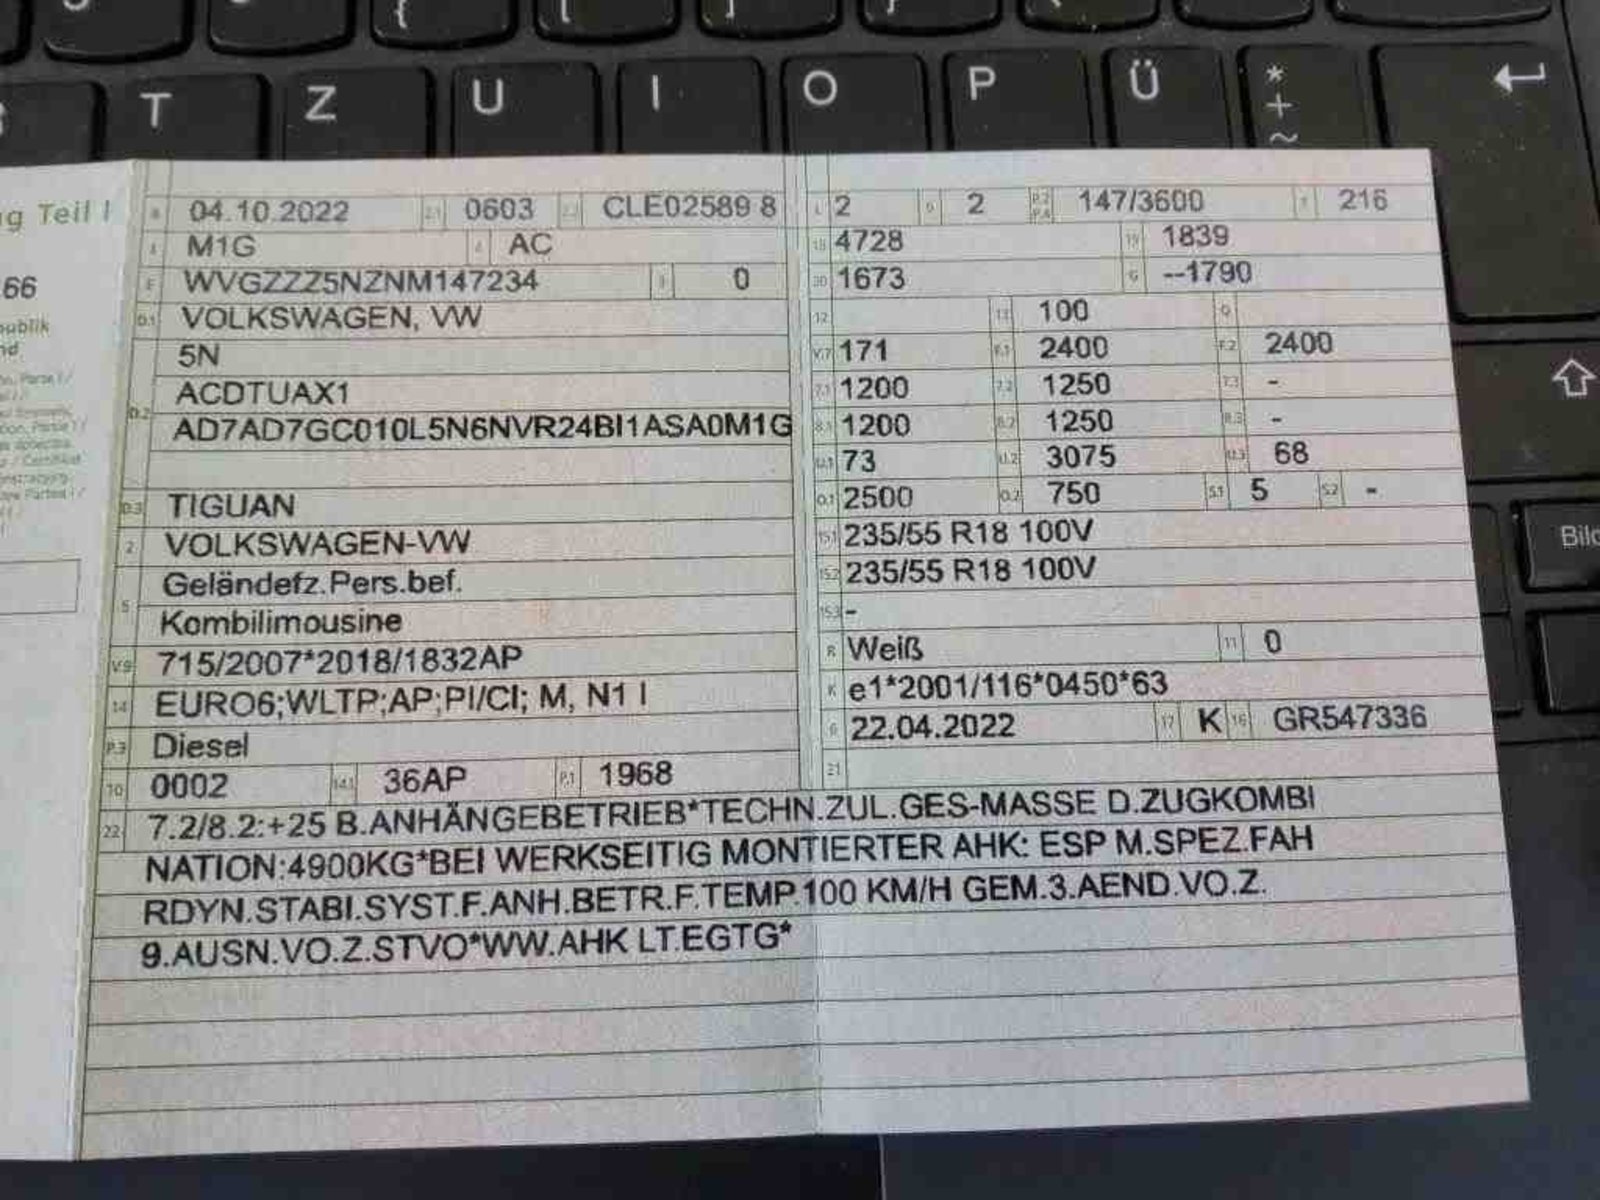 T Z U I O P Ü * + ~
Bild
ng Teil I
66
B 04.10.2022 2.1 0603 2.2 CLE02589 8
J M1G 4 AC
E WVGZZZ5NZNM147234 3 0
D.1 VOLKSWAGEN, VW
5N
D.2 ACDTUAX1
AD7AD7GC010L5N6NVR24BI1ASA0M1G
D.3 TIGUAN
2 VOLKSWAGEN-VW
5 Geländefz.Pers.bef.
Kombilimousine
V.9 715/2007*2018/1832AP
14 EURO6;WLTP;AP;PI/CI; M, N1 I
P.3 Diesel
10 0002 14.1 36AP P.1 1968
L 2 9 2 P.2 P.4 147/3600 T 216
18 4728 19 1839
20 1673 G --1790
12 13 100 Q
V.7 171 F.1 2400 F.2 2400
7.1 1200 7.2 1250 7.3 -
8.1 1200 8.2 1250 8.3 -
U.1 73 U.2 3075 U.3 68
O.1 2500 O.2 750 S.1 5 S.2 -
15.1 235/55 R18 100V
15.2 235/55 R18 100V
15.3 -
R Weiß 11 0
K e1*2001/116*0450*63
6 22.04.2022 17 K 16 GR547336
21
22 7.2/8.2:+25 B.ANHÄNGEBETRIEB*TECHN.ZUL.GES-MASSE D.ZUGKOMBI
NATION:4900KG*BEI WERKSEITIG MONTIERTER AHK: ESP M.SPEZ.FAH
RDYN.STABI.SYST.F.ANH.BETR.F.TEMP.100 KM/H GEM.3.AEND.VO.Z.
9.AUSN.VO.Z.STVO*WW.AHK LT.EGTG*